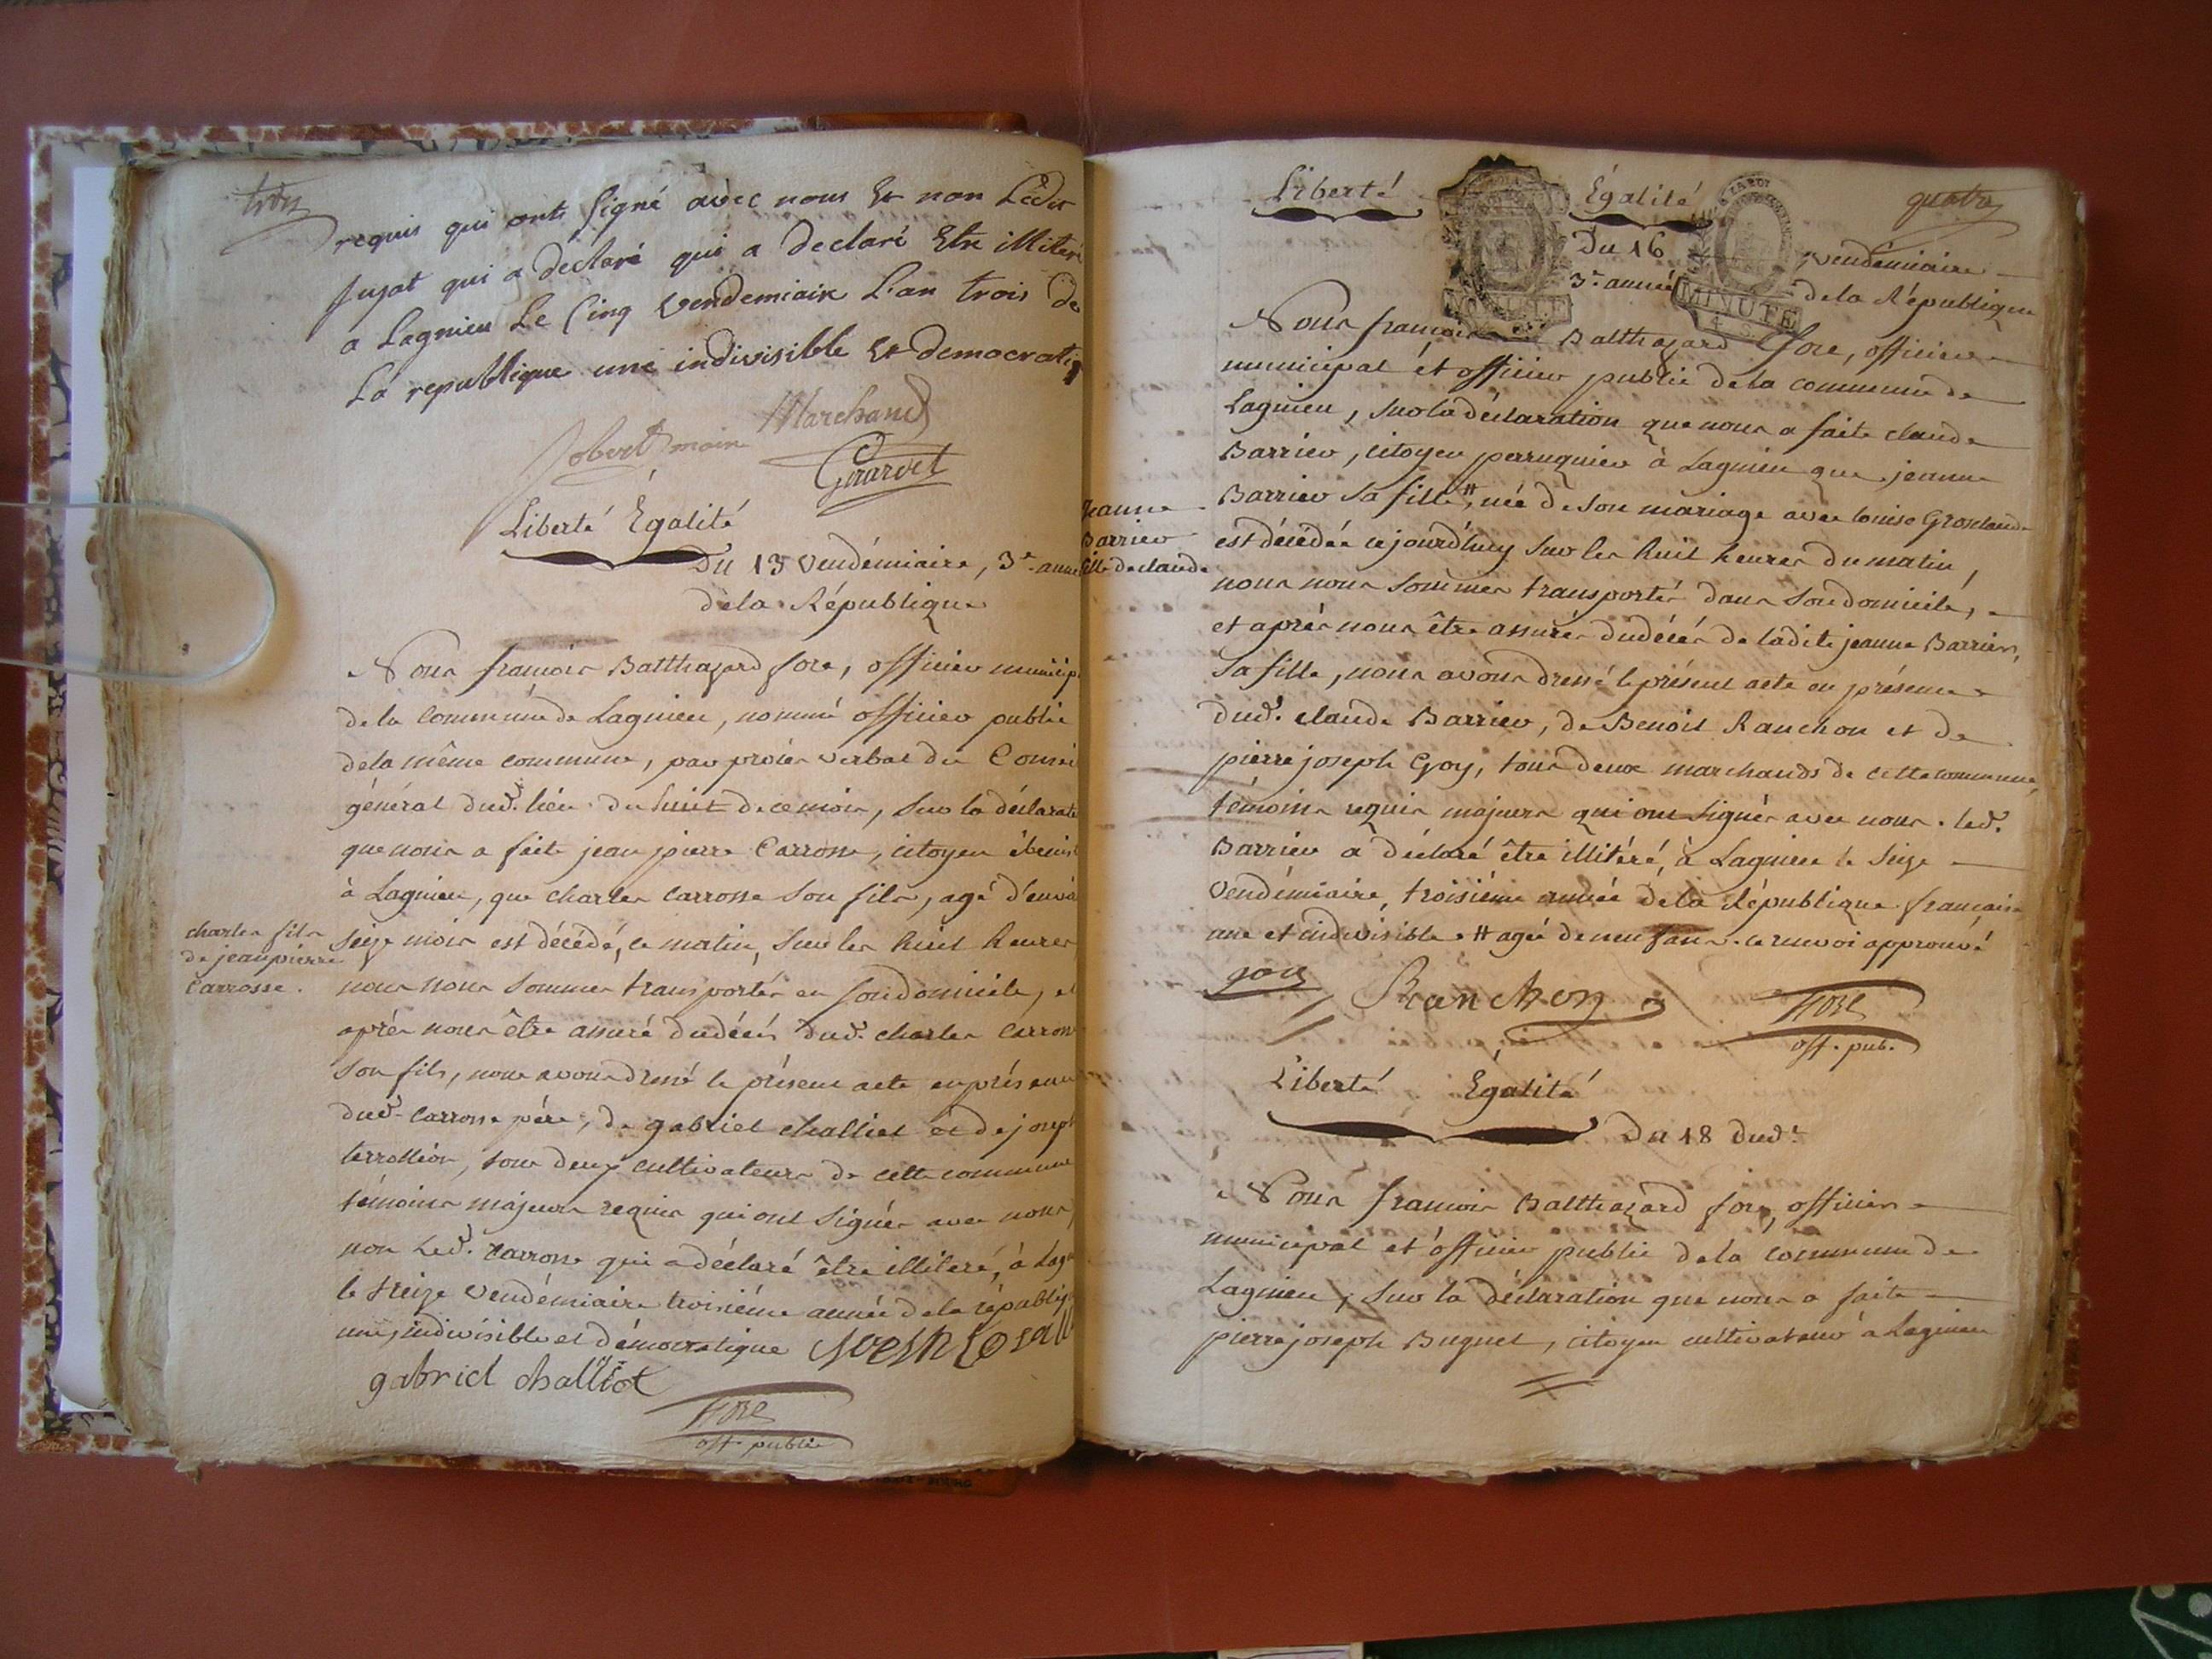 trois
requis qui ont signé avec nous Et non Ledit
jugat qui a declaré qui a declaré Etre illiteré
a Lagnieu Le Cinq vendemiaire L'an trois de
La republique une indivisible Et democratiq
Marchand
Jobert maire
Girardet
Liberté Égalité
Du 13 Vendémiaire, 3e. anné
dela République
Nous françois Balthazard fore, officier municip
de la commune de Lagnieu, nommé officier public
dela même commune, par procés verbal du Consei
général dud. lieu du huit de ce mois, sur la déclarati
que nous a faite jean pierre Carrosse, citoyen ébenist
à Lagnieu, que charles carrosse son fils, agé d'envir
charles fils
de jean pierre
Carrosse.
seize mois est décédé, ce matin, sur les huit heures
nous nous sommes transportés en son domicile, et
aprés nous être assuré du décés dud. charles carross
son fils, nous avons dressé le présent acte en présence
dud. carrosse pére, de gabriel challiet et de joseph
tous deux cultivateurs de cette commune
témoins majeurs requis qui ont signés avec nous,
non Led. carrosse qui a déclaré être illiteré, à Lagn
le treize vendémiaire troisiéme année de la républiq
une, indivisible et démocratique
gabriel challiot
fore
off. public
Liberté Égalité
quatre
MINUTE
MINUTE
4 S.
Du 16 vendémiaire
3e. année dela République
Nous françois Balthazard fore, officier
municipal et officier public dela commune de
Lagnieu, sur la déclaration que nous a faite claude
Barrier, citoyen perruquier à Lagnieu que jeanne
Jeanne
Barrier
fille de claude
Barrier sa fille #, née de son mariage avec louise Groslaude
est décédée cejourd'huy sur les huit heures du matin,
nous nous sommes transportés dans son domicile,
et aprés nous être assurés du décés de ladite jeanne Barrier,
sa fille, nous avons dressé le présent acte en présence
dud. claude Barrier, de Benoit Ranchon et de
pierre joseph Goy, tous deux marchands de cette commune,
témoins requis majeurs qui ont signés avec nous. led.
Barrier a déclaré être illitéré, à Lagnieu le seize
vendémiaire, troisiéme année dela République française
une et indivisible. # agée de neuf ans. ce renvoi approuvé
goy Ranchon fore
off. pub.
Liberté Égalité
Du 18 dud.
Nous françois Balthazard fore, officier
municipal et officier public dela commune de
Lagnieu, sur la déclaration que nous a faite
pierre joseph Buguet, citoyen cultivateur à Lagnieu